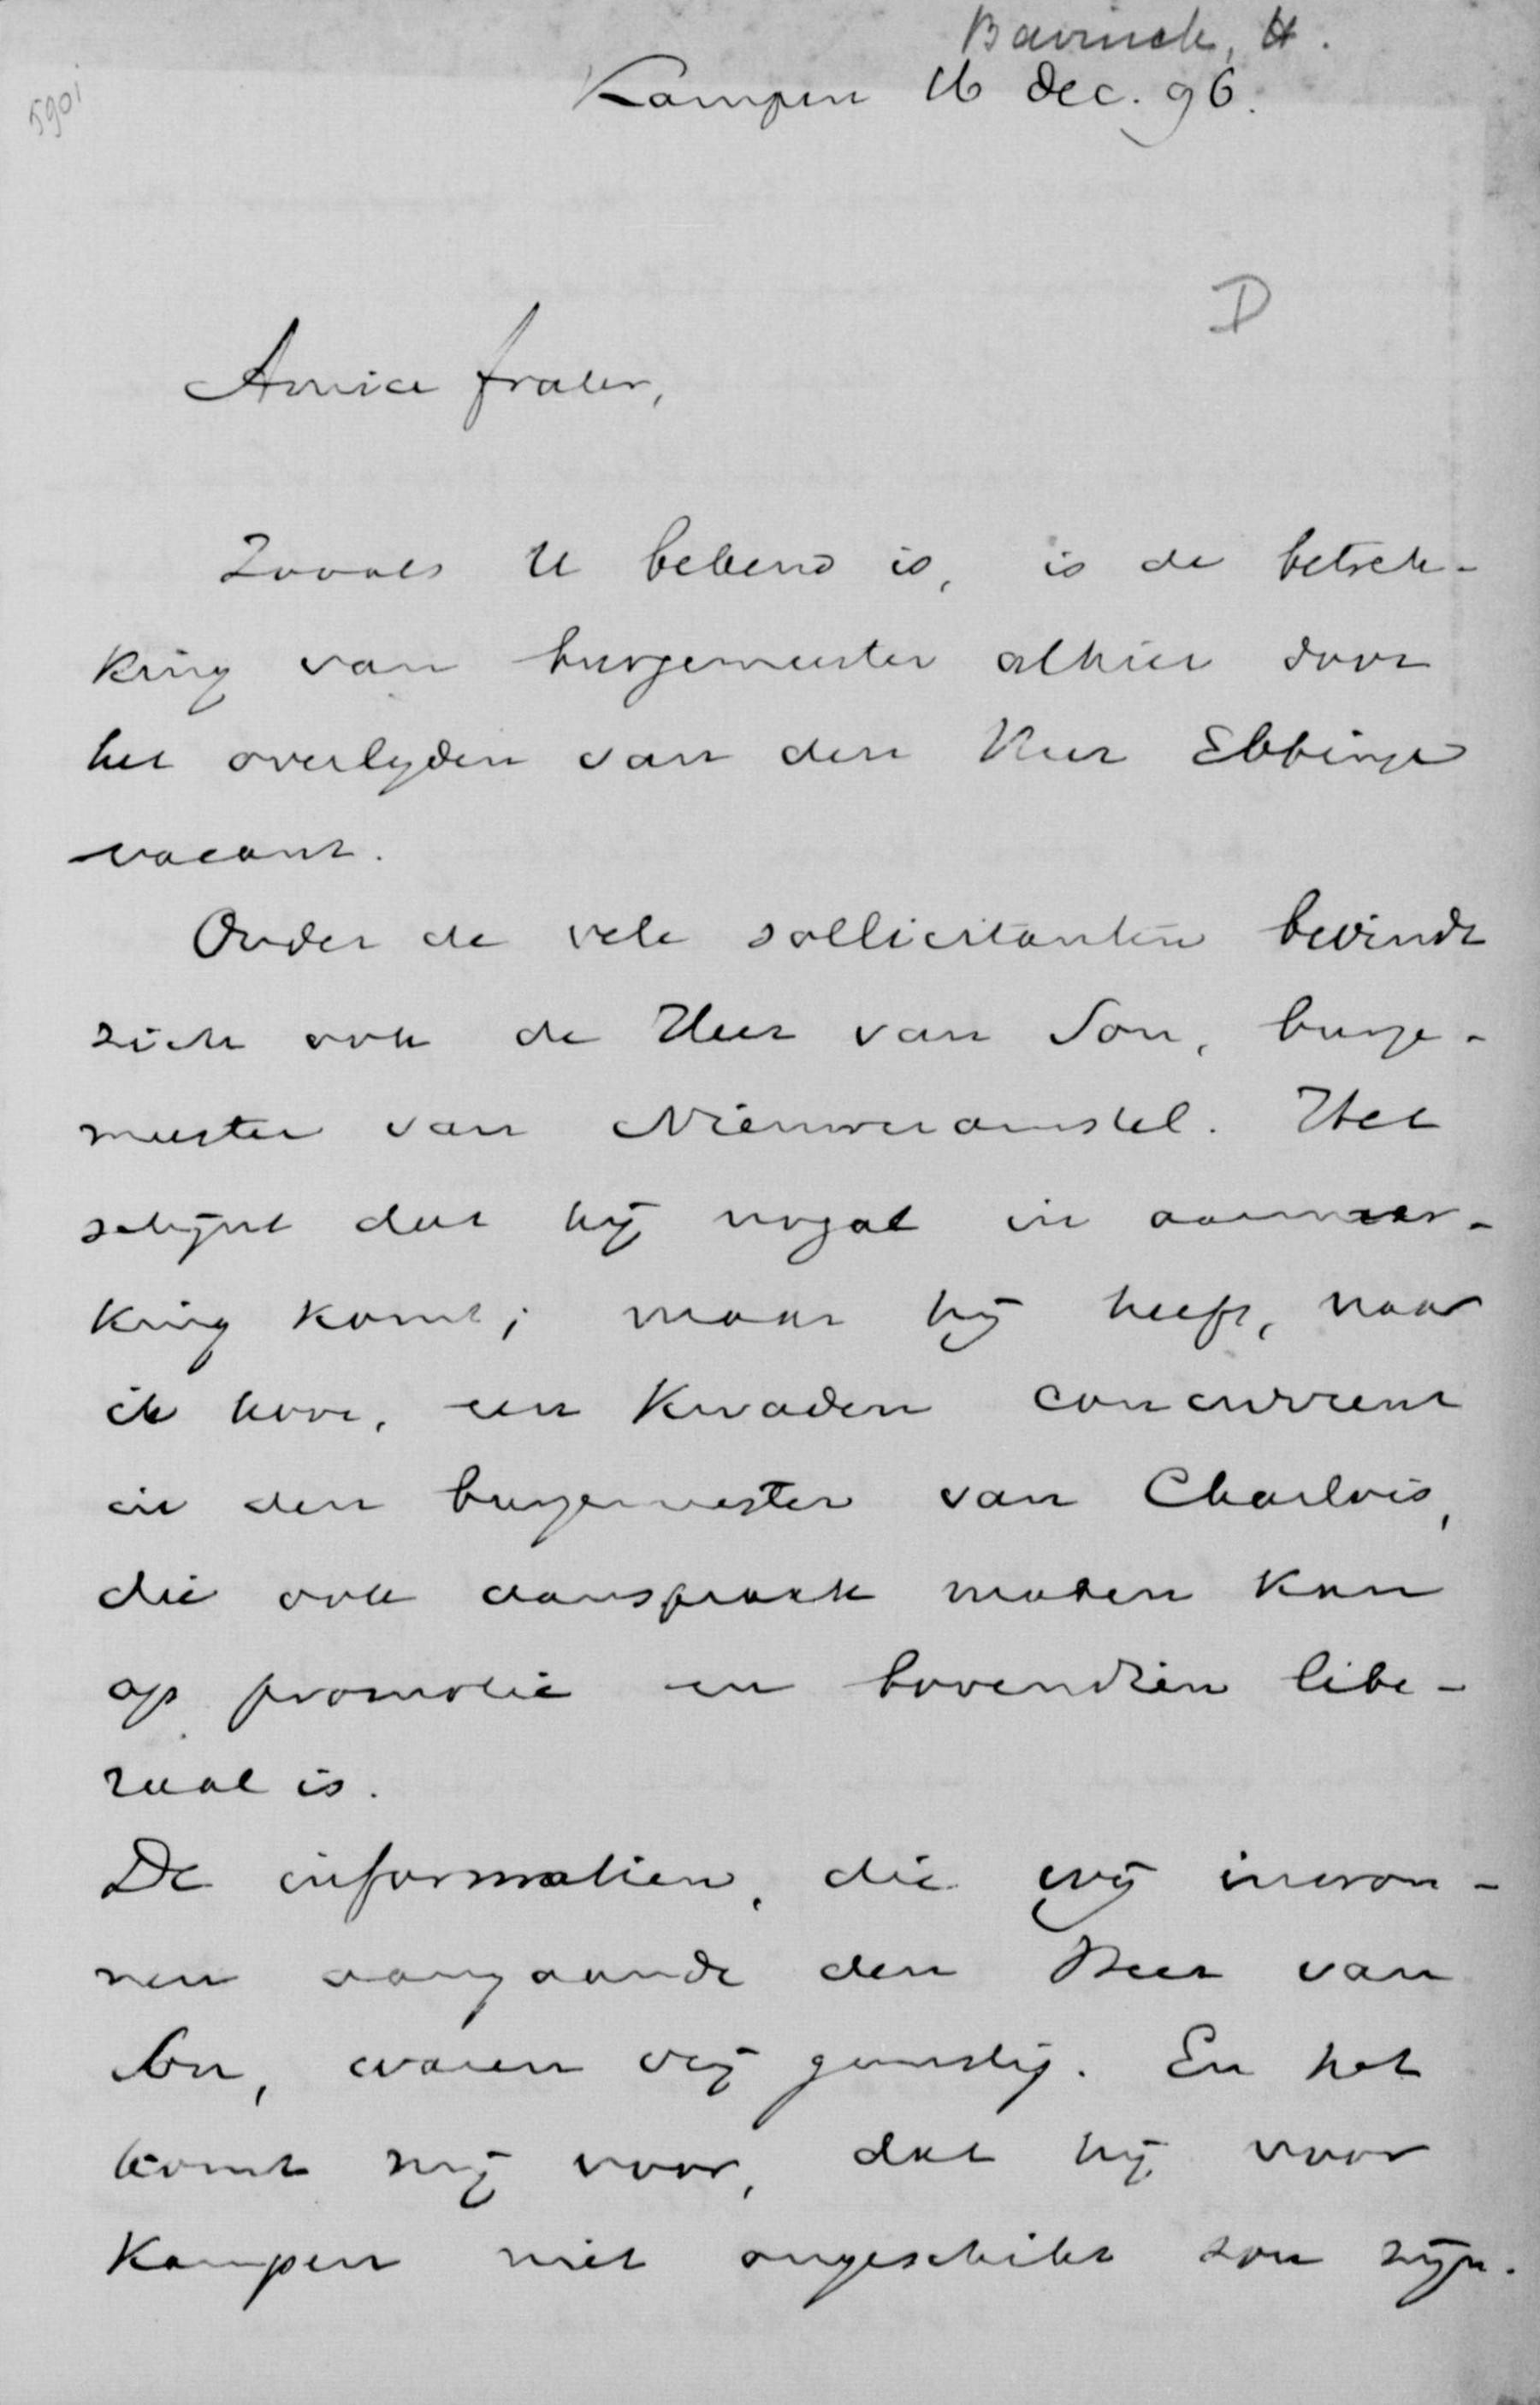 Bavinck, H.
Kampen 16 Dec. 96.
5901
D
Amice frater,
Zooals U bekend is, is de betrek-
king van burgemeester alhier door
het overlyden van den Heer Ebbinge
vacant.
Onder de vele sollicitanten bevindt
zich ook de Heer van Son, burge-
meester van Nieuweramstel. Het
schijnt dat hij nogal in aanmer-
king komt; maar hij heeft, naar
ik hoor, een kwaden concurrent
in den burgemeester van Charlois,
die ook aanspraak maken kan
op promotie en bovendien libe-
raal is.
De informatien, die wij inwon-
nen aangaande den Heer van
Son, waren vrij gunstig. En het
komt mij voor, dat hij voor
Kampen niet ongeschikt zou zijn.